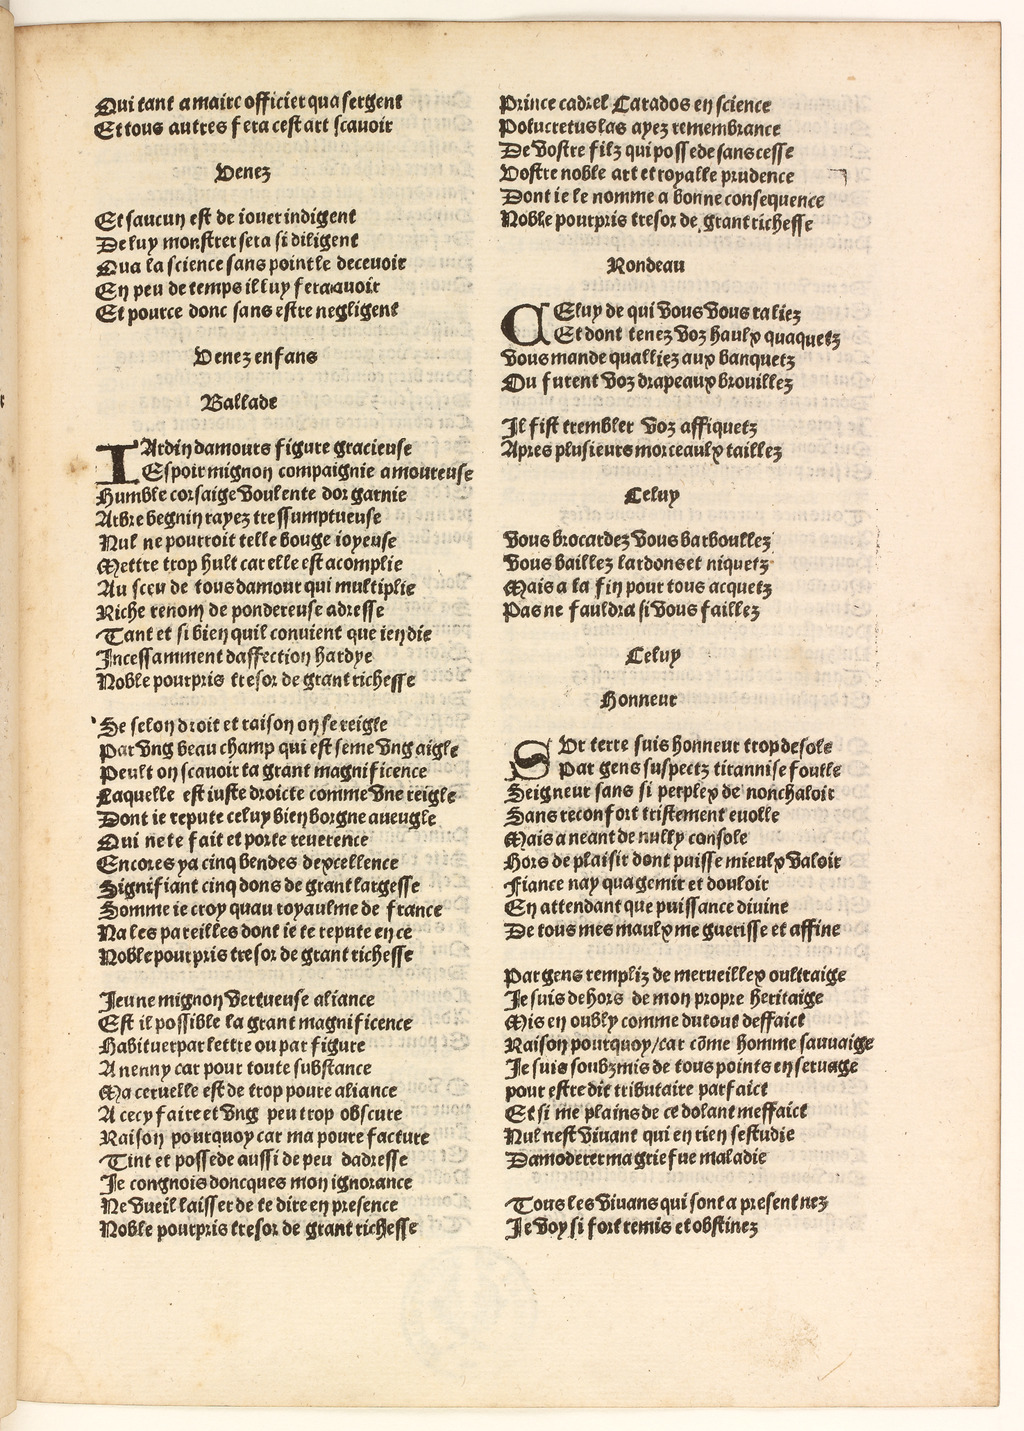 Qui tant a maire officier qua sergent
Et tous autres fera cest art scauoir
Venez
Et saucun est de iouer indigent
De luy monstrer sera si diligent
Qua la science sans point le deceuoir
En peu de temps il luy fera auoir
Et pource donc sans estre negligent
Venez enfans
Ballade
IArdin damours figure gracieuse
Espoir mignon compaignie amoureuse
Humble corsaige voulente dor garnie
Arbre begnin rayez tressumptueuse
Nul ne pourroit telle bouge ioyeuse
Mettre trop hult car elle est acomplie
Au sceu de tous damour qui multiplie
Riche renom de pondereuse adresse
Tant et si bien quil conuient que ien die
Incessamment daffection hardye
Noble pourpris tresor de grant richesse
Se selon droit et raison on se reigle
Par vng beau champ qui est seme vng aigle
Peult on scauoir ta grant magnificence
Laquelle est iuste droicte comme vne reigle
Dont ie repute celuy bien borgne aueugle
Qui ne te fait et porte reuerence
Encores ya cinq bendes dexcellence
Signifiant cinq dons de grant largesse
Somme ie croy quau royaulme de france
Na les pareilles dont ie te repute en ce
Noble pourpris tresor de grant richesse
Jeune mignon vertueuse aliance
Est il possible la grant magnificence
Habituer par lettre ou par figure
A nenny car pour toute substance
Ma ceruelle est de trop poure aliance
A cecy faire et vng peu trop obscure
Raison pourquoy car ma poure facture
Tint et possede aussi de peu dadresse
Je congnois doncques mon ignorance
Ne vueil laisser de te dire en presence
Noble pourpris tresor de grant richesse
Prince cadrel Carados en science
Polucretus las ayez remembrance
De vostre filz qui possede sans cesse
Vostre noble art et royalle prudence
Dont ie le nomme a bonne consequence
Noble pourpris tresor de grant richesse
Rondeau
CEluy de qui vous vous raliez
Et dont tenez voz haulx quaquetz
Vous mande qualliez aux banquetz
Ou furent voz drapeaux brouillez
Il fist trembler voz affiquetz
Apres plusieurs morceaulx taillez
Celuy
Vous brocardez vous barboullez
Vous baillez lardons et niquetz
Mais a la fin pour tous acquetz
Pas ne fauldra si vous faillez
Celuy
Honneur
SVr terre suis honneur trop desole
Par gens suspectz tirannise foulle
Seigneur sans si perplex de nonchaloir
Sans reconfort tristement euolle
Mais a neant de nully console
Hors de plaisir dont puisse mieulx valoir
Fiance nay qua gemir et douloir
En attendant que puissance diuine
De tous mes maulx me guerisse et affine
Par gens rempliz de merueillex oultraige
Je suis dehors de mon propre heritaige
Mis en oubly comme du tout deffaict
Raison pourquoy/car cõme homme sauuaige
Je suis soubzmis de tous points en seruage
pour estre dit tributaire parfaict
Et si me plains de ce dolant meffaict
Nul nest viuant qui en rien sestudie
Damoderer ma griefue maladie
Tous les viuans qui sont a present nez
Je voy si fort remis et obstinez